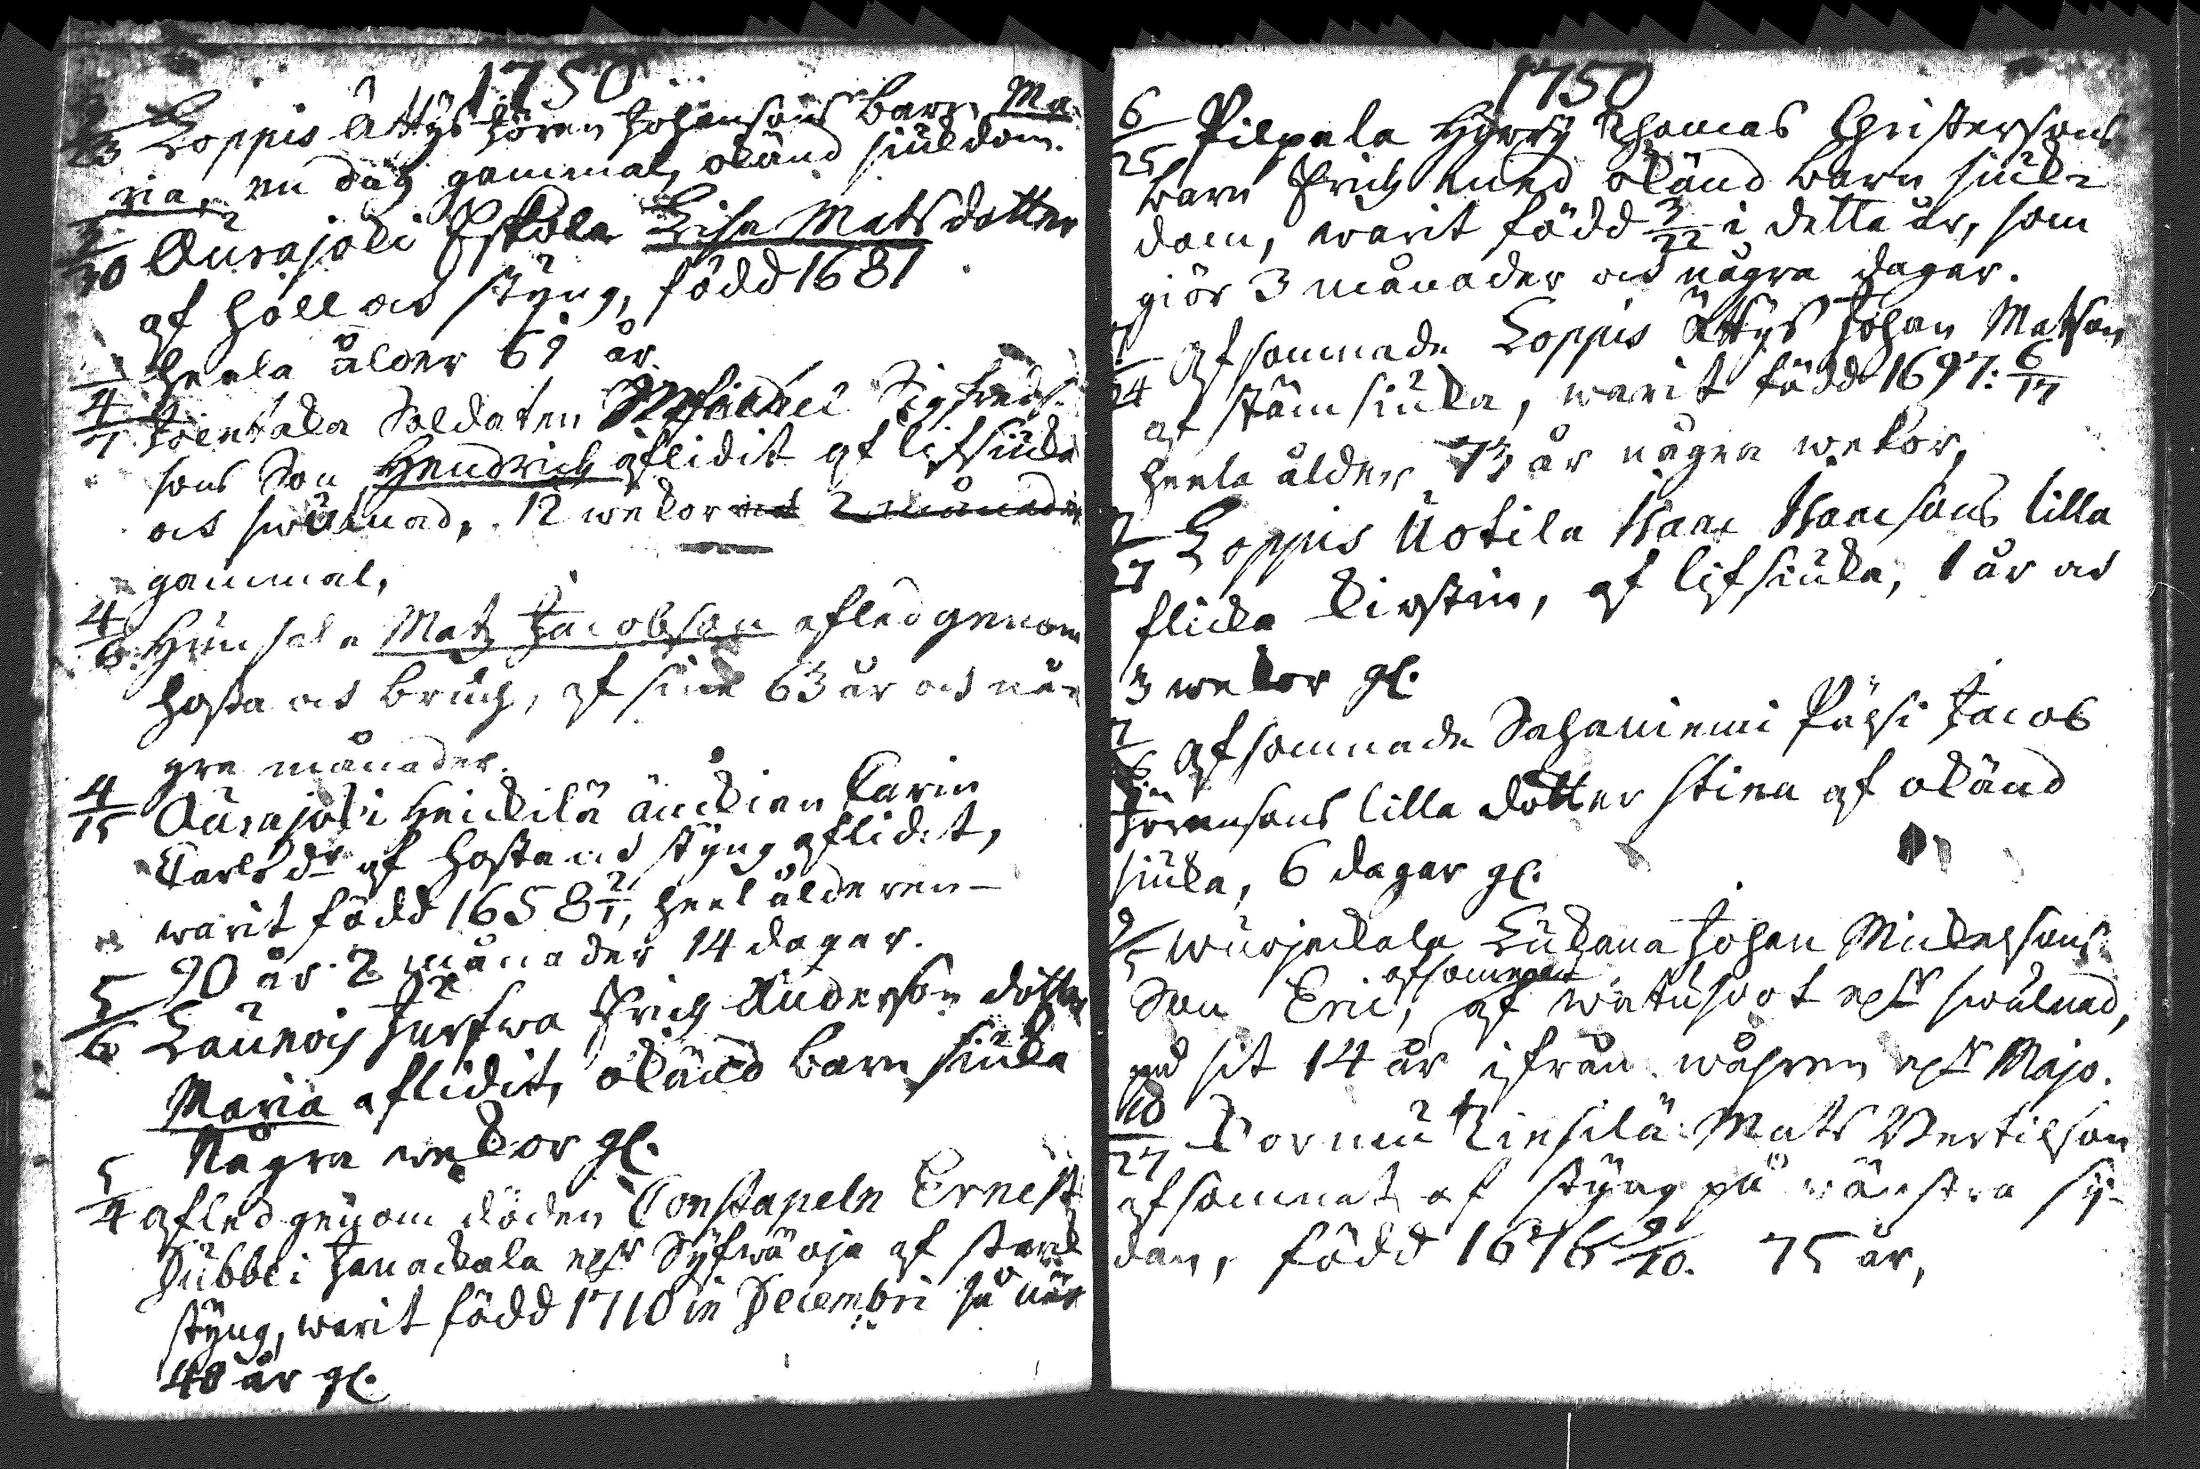 1750
3/23 Loppis Ättys Jören Johansons barn Ma-
ria, en dag gammal, okänd siukdom.
3/30 Aurajoki Eskola Lisa Mats dotter
af håll och styng, född 1681
heela ålder 69 år.
4/7 Soldaten Michael Sigfreds-
sons Son Hendrich aflidit af lifsiuka
och swulnad, 12 wekor och 2 månader
gammal,
4/8 Hunsala Matz Jacobson afled genom
hosta och bruch, af sine 63 år och nå-
gra månader.
4/15 Aurajoki Heickilä änckian Carin
Carlsdr af hosta och styng aflidit,
warit född 1658 2/1, heel ålderen
90 år 2 månader 14 dagar.
5/6 Launois Erich Anderson dotter
Maria aflidit, okänd barn siuka
Några wekor gl.
5/4 afled genom döden Constapeln Ernest
Dubbe i Janackala af stark
styng, warit född 1710 in Decembri så när
40 år gl.
1750
6/25 Pilpala Hyrsy Thomas Christersons
barn Erich med okänd barn siuk-
dom, warit född 3/22 i detta år, som
giör 3 månader och några dagar.
afsomnade Loppis Ättys Johan Matson
af stämsiuka, warit född 1697: 6/17
heela ålder 73 år några wekor,
7/27 Loppis Uotila Isaac Isaacsons lilla
flicka Kirstin, af lifsiuka, 1 år och
3 wekor gl.
7/6 afsomnade Sajaniemi Pärsi Jacob
Jörensons lilla dotter Stina af okänd
siuka, 6 dagar gl.
9/5 Wuojackala Lukana Johan Mickelsons
Son Eric, afsomnat af wätusoot swulnad,
på sit 14 år ifrån wåhren Majo.
10/27 Cormu Kinsilä Mats Bertilson
afsomnat af styng på wänstra sy-
dan, född 1676 9/10. 75 år,